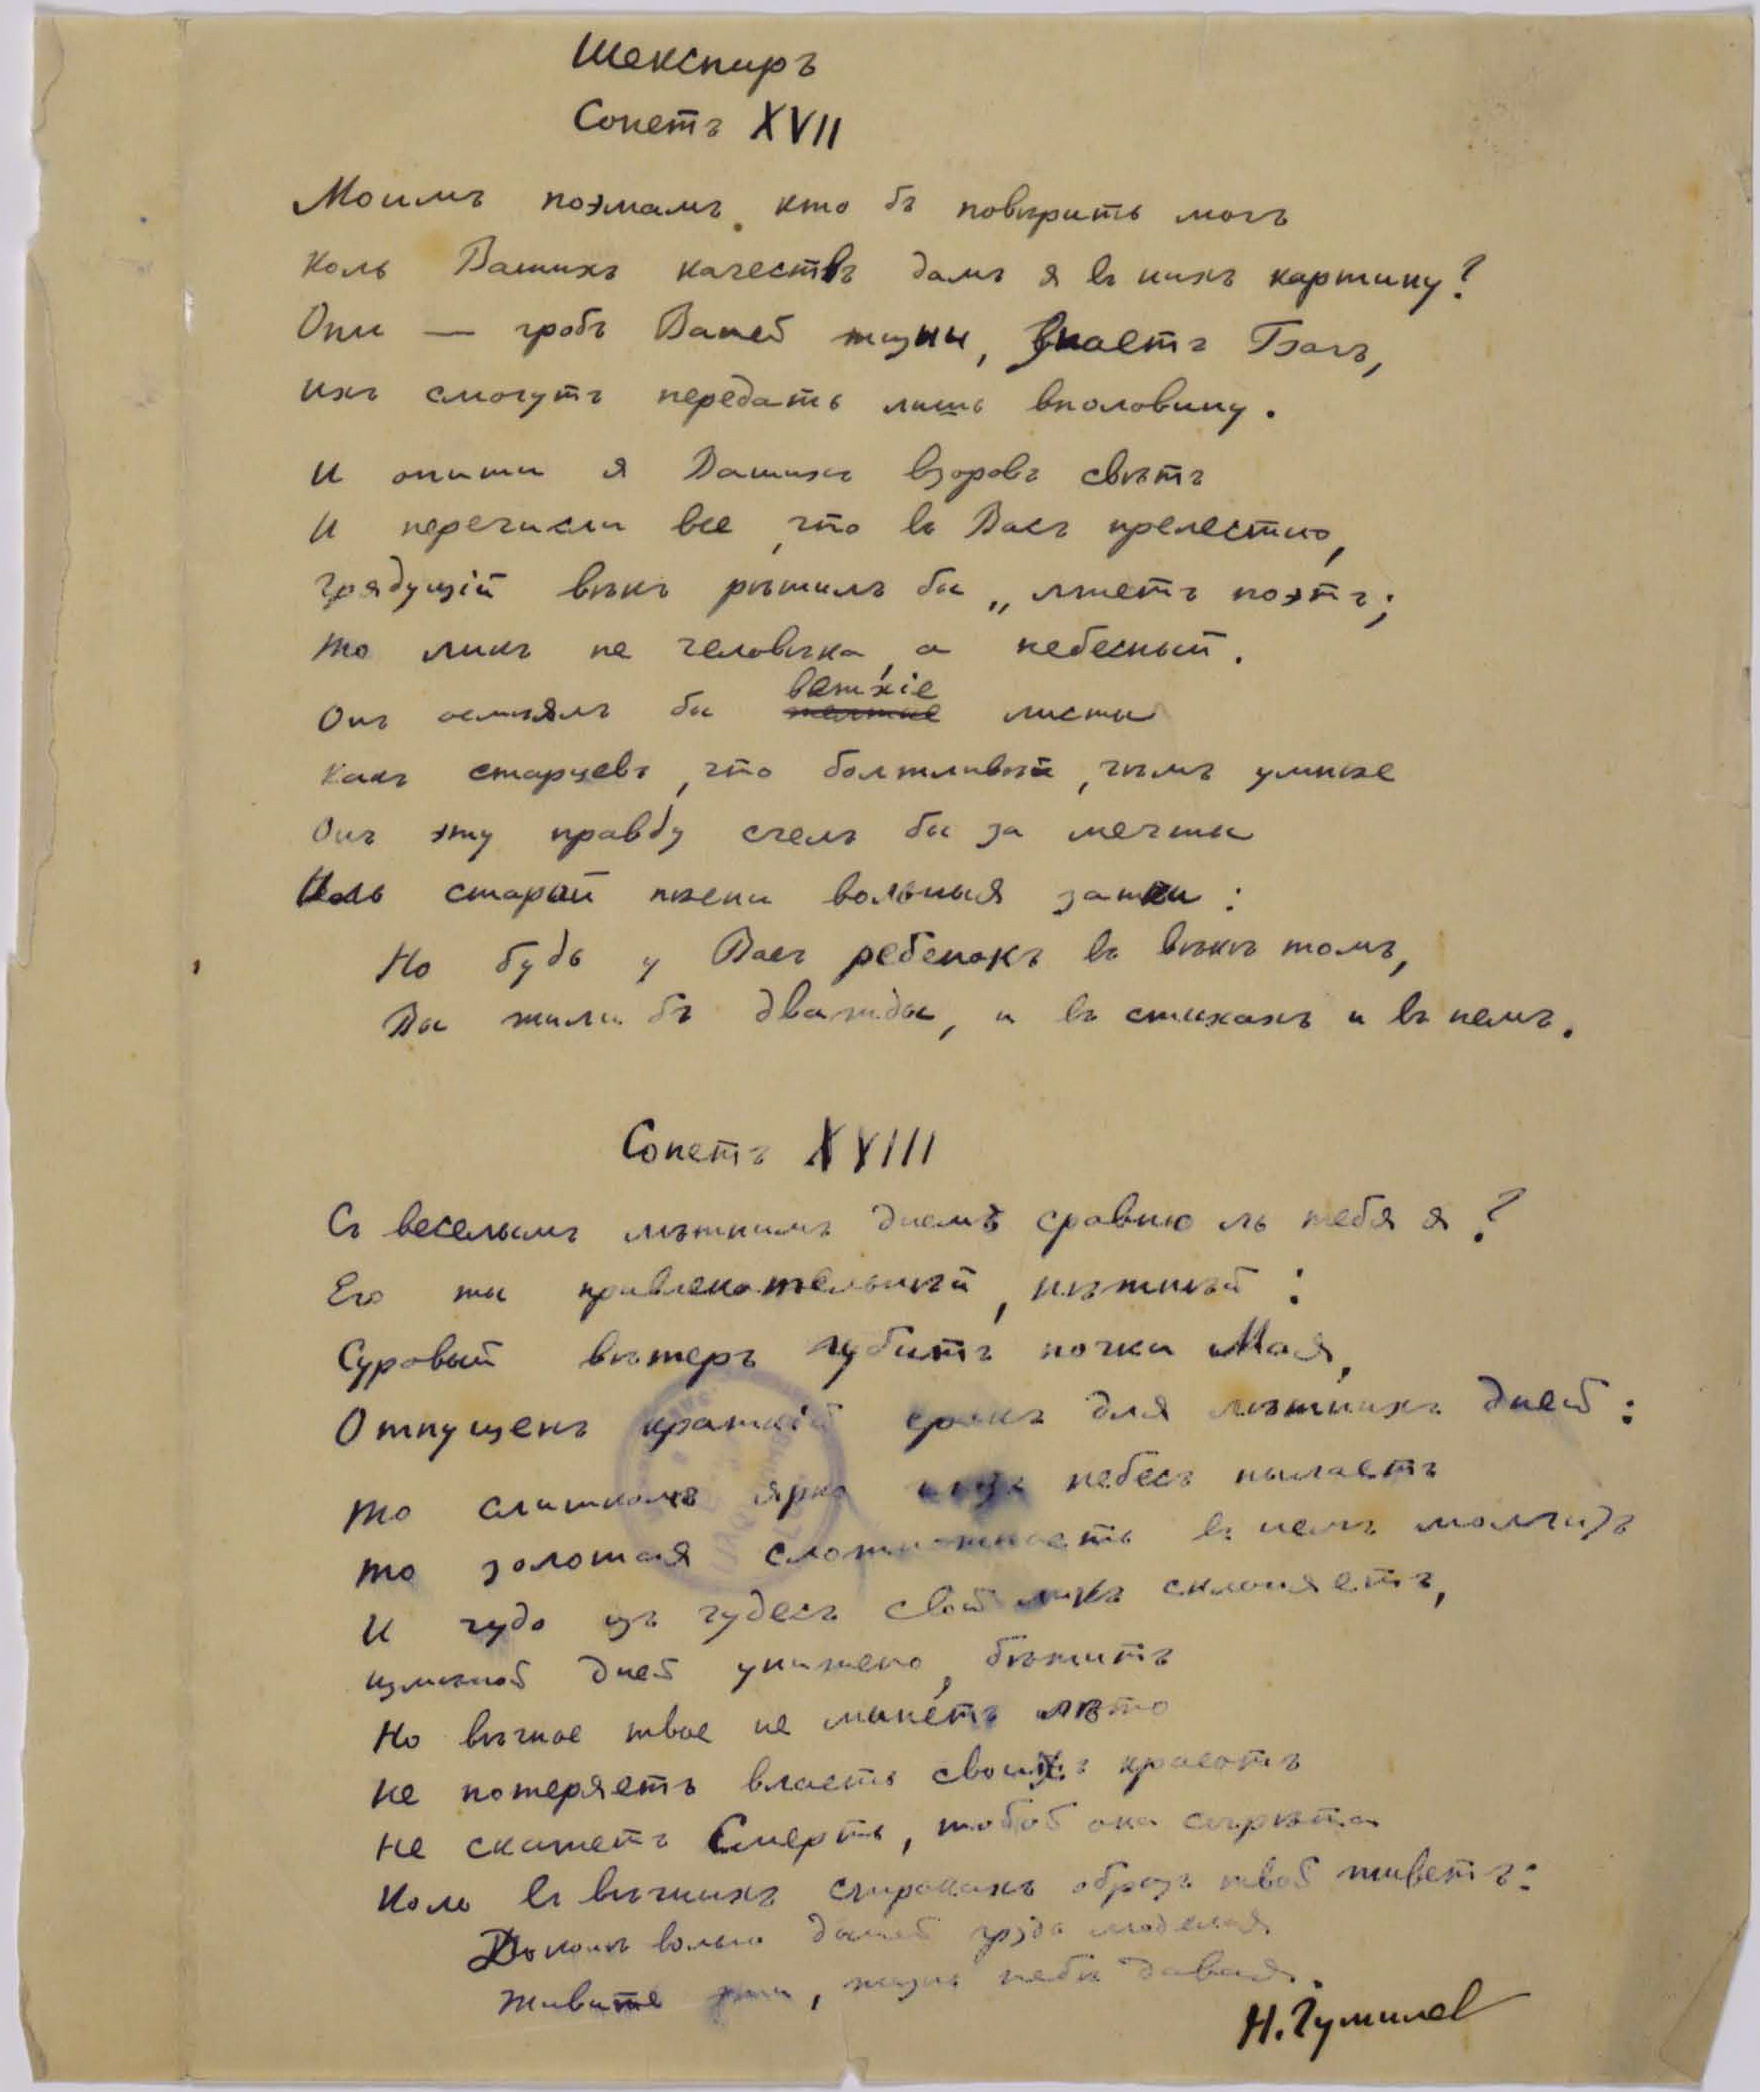 Шекспиръ
Сонетъ XVII
Моимъ поэмамъ кто бъ повѣрить могъ
Коль Вашихъ качествъ дамъ я въ нихъ картину?
Они — гробъ Вашей жизни, знаетъ Богъ,
ихъ смогутъ передать лишь вполовину.
И опиши я Вашихъ взоровъ свѣтъ
И перечисли все, что въ Васъ прелестно,
Грядущій вѣкъ рѣшилъ бы „лжетъ поэтъ;
то ликъ не человѣка, а небесный.
Онъ осмѣялъ бы ветхіе листы
Какъ старцевъ, что болтливѣй, чѣмъ умнѣе
Онъ эту правду счелъ бы за мечты
Иль старой пѣсни вольныя затѣи:
Но будь у Васъ ребенокъ въ вѣкѣ томъ,
Вы жили бъ дважды, и въ стихахъ и въ немъ.
Сонетъ XVIII
Съ веселымъ лѣтнимъ днемъ сравню ль тебя я?
Его ты привлекательнѣй, нѣжнѣй:
Суровый вѣтеръ губитъ почки Мая,
Отпущенъ краткій срокъ для лѣтнихъ дней:
то слишкомъ ярко небесъ пылаетъ
то золотая въ немъ
И чудо изъ чудесъ свой ликъ склоняетъ,
измѣной дней унижено, бѣжитъ
Но вѣчное твое не минетъ лѣто
не потеряетъ власть своихъ красотъ
не скажетъ Смерть, тобой она согрѣта
Коль въ вѣчныхъ строкахъ образъ твой живетъ:
Доколь вольно дышетъ грудь людская
Живите, жизнь тебѣ давая.
Н. Гумилев